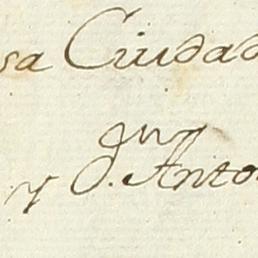 sa Ciudad
y D.n Anto